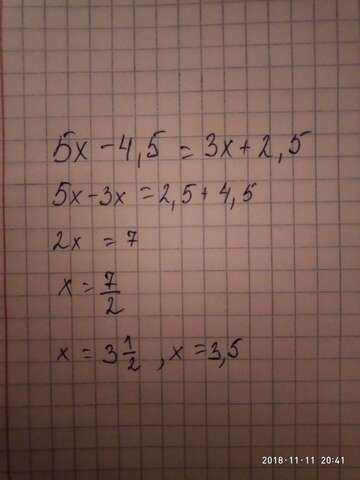 5x - 4,5 = 3x + 2,5
5x - 3x = 2,5 + 4,5
2x = 7
x = 7/2
x = 3 1/2 , x = 3,5
2018-11-11 20:41